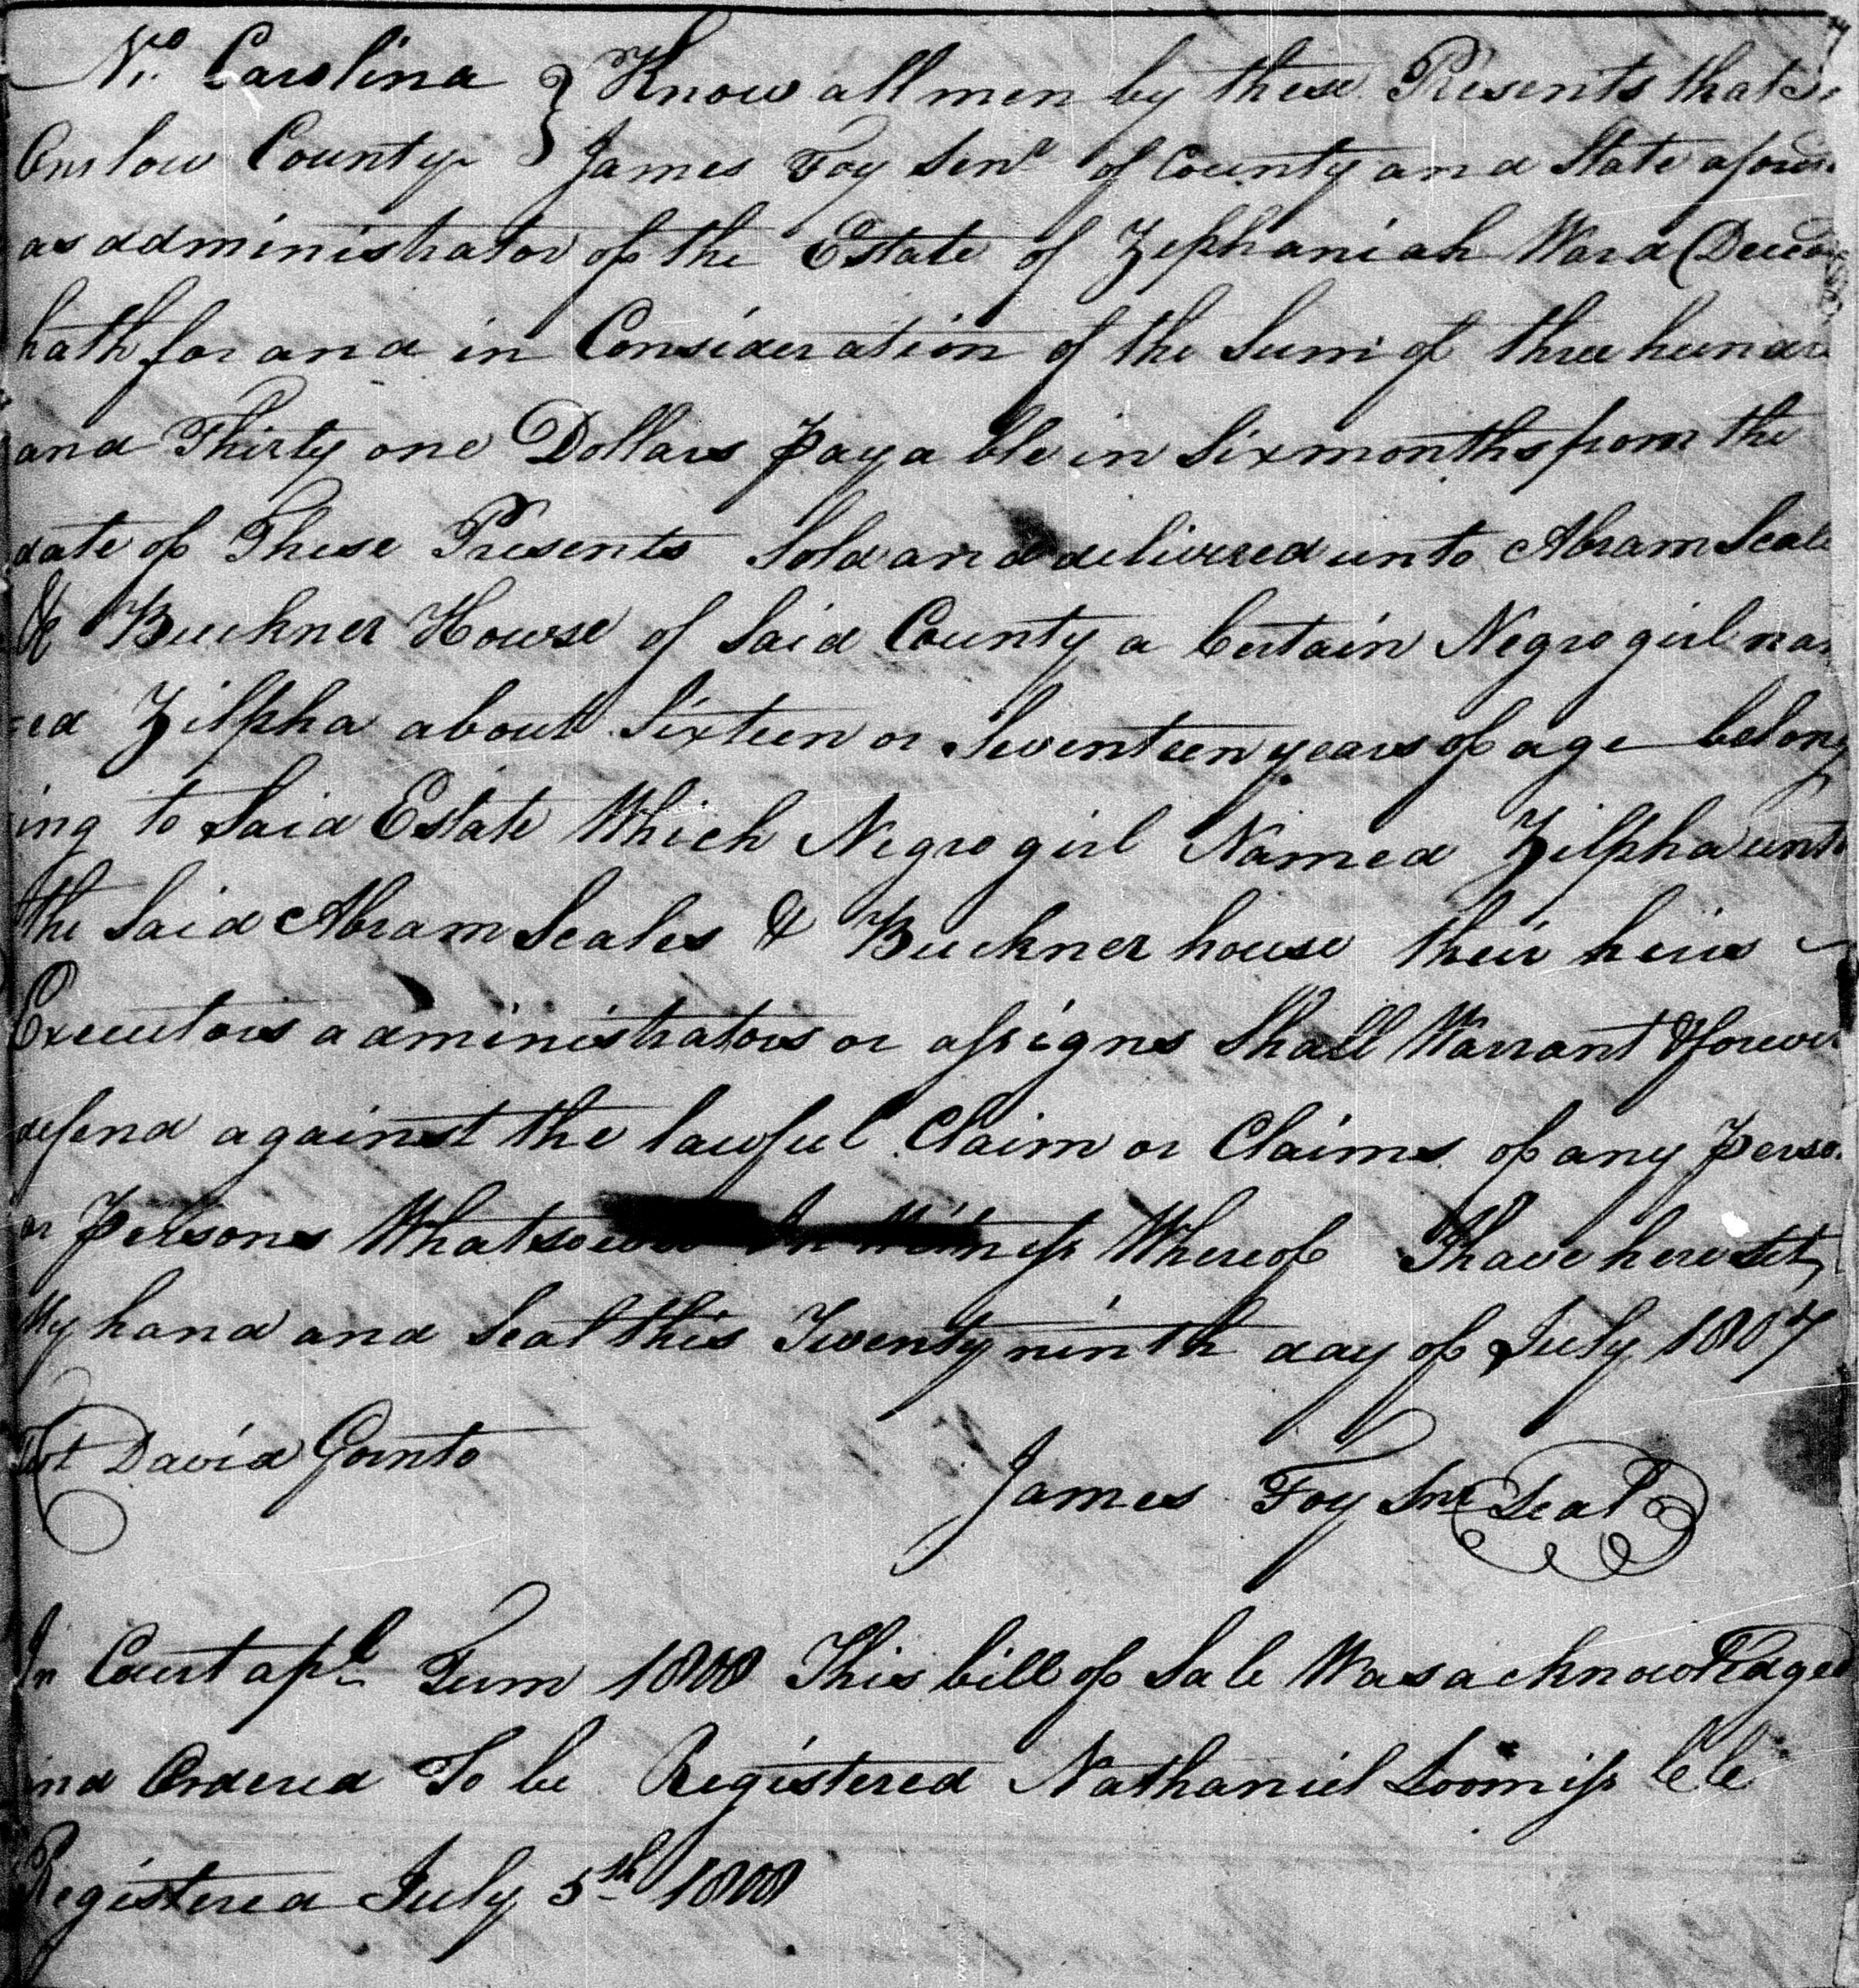 No Carolina } Know all men by these Presents that I
Onslow County } James Foy Senr of County and State afores
as administrator of the Estate of Zephaniah Ward (Decea
hath for and in Consideration of the Sum of three hundr
and Thirty one Dollars payable in Six months from the
date of These Presents Sold and delivered unto Abram Scale
& Buckner House of Said County a Certain Negro girl na
=ed Zilpha about Sixteen or Seventeen years of age belong
ing to Said Estate Which Negro girl Named Zilpha unto
the Said Abram Scales & Buckner house their heirs
Executors administrators or assigns Shall Warrant & forever
defend against the lawful Claim or Claims of any perso
or persons Whatsoever In Witness Whereof I have here set
My hand and Seal this Twenty ninth day of July 1807
Test David Gornto
James Foy Snr Seal
In Court apl Term 1808 This bill of Sale Was acknowledged
and Ordered To be Registered Nathaniel Loomiss CC
Registered July 5th 1808